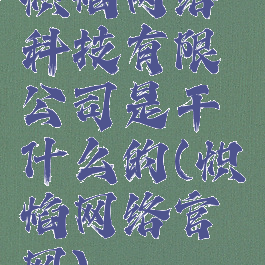 炽焰网络
科技有限
公司是干
什么的(炽
焰网络官
网)